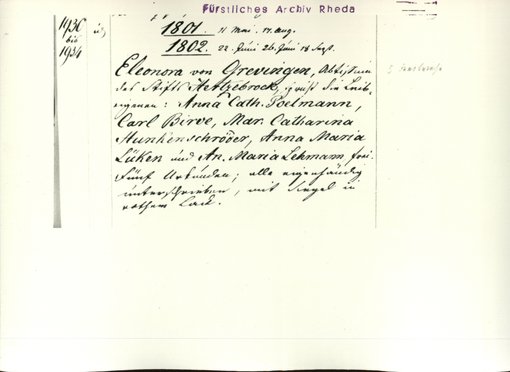 Fürstliches Archiv Rheda
1801. 11 Mai. 17. Aug.
1936 bis 1934
1802. 22. Juni 26. Juni 18 Sept.
Eleonora von Grevingen, Äbtissin
des Stifts Hertzebrock, die Leib-
eigenen: Anna Cath. Poelmann,
Carl Birve, Mar. Catharina
Munkenschröder, Anna Maria
Lüken und An. Maria Lehmann, frei.
Fünf Urkunden; alle eigenhändig
unterschrieben, mit Siegel in
rothem Lack.